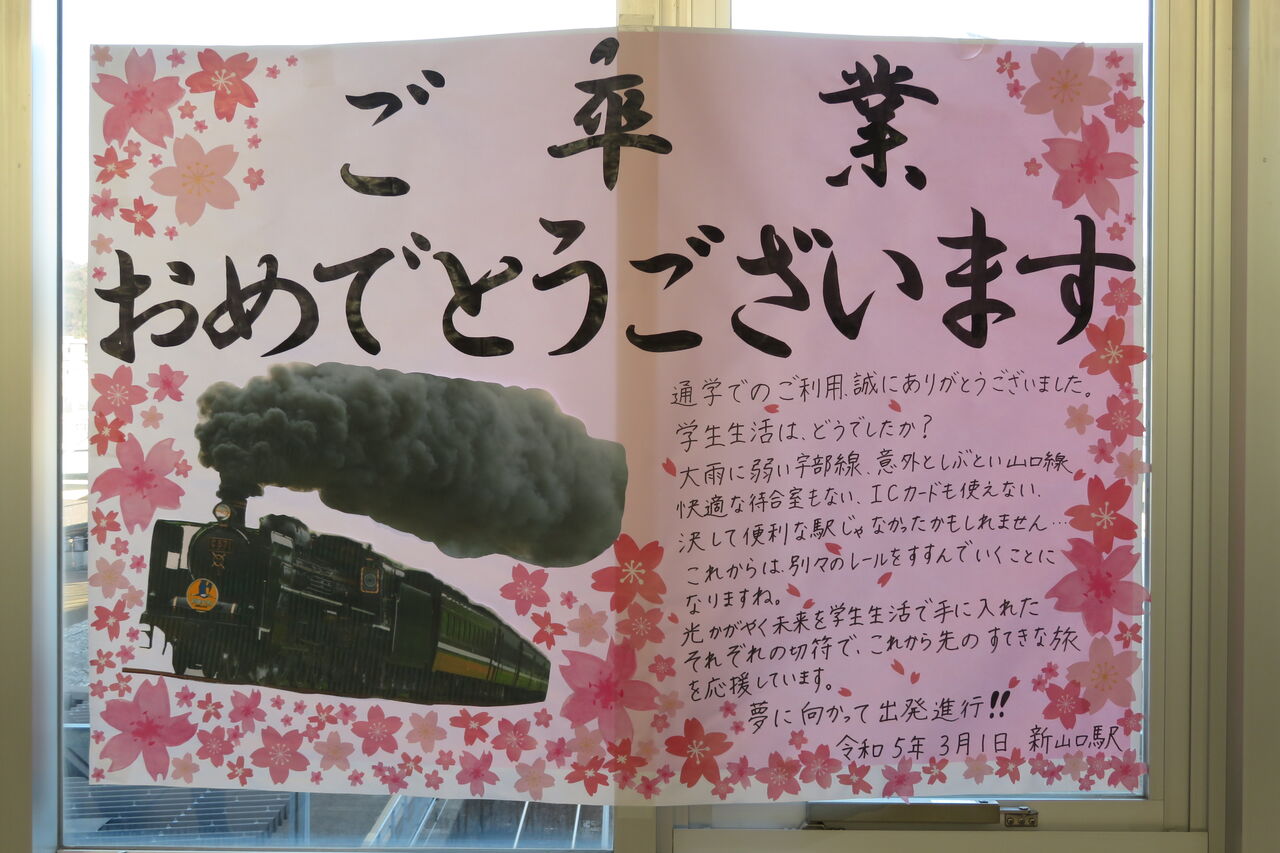 ご卒業
おめでとうございます
通学でのご利用、誠にありがとうございました。
学生生活は、どうでしたか？
大雨に弱い宇部線、意外としぶとい山口線
快適な待合室もない、ICカードも使えない、
決して便利な駅じゃなかったかもしれません…
これからは、別々のレールをすすんでいくことに
なりますね。
光かがやく未来を学生生活で手に入れた
それぞれの切符で、これから先のすてきな旅
を応援しています。
夢に向かって出発進行!!
令和5年3月1日 新山口駅